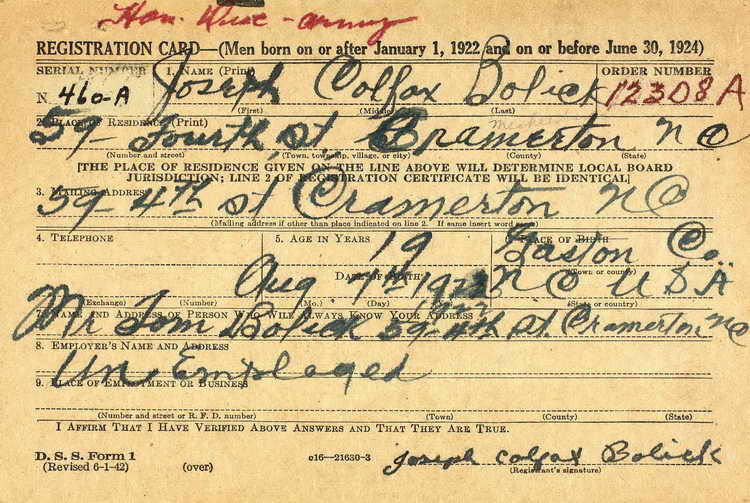 Hon. Disc - Army
REGISTRATION CARD—(Men born on or after January 1, 1922 and on or before June 30, 1924)
SERIAL NUMBER 1. NAME (Print) ORDER NUMBER
N 460-A Joseph Colfax Bolick 12308 A
(First) (Middle) (Last)
2. PLACE OF RESIDENCE (Print)
59- Fourth St. Cramerton NC
(Number and street) (Town, township, village, or city) (County) (State)
[THE PLACE OF RESIDENCE GIVEN ON THE LINE ABOVE WILL DETERMINE LOCAL BOARD
JURISDICTION; LINE 2 OF REGISTRATION CERTIFICATE WILL BE IDENTICAL]
3. MAILING ADDRESS
59-4th st Cramerton NC
(Mailing address if other than place indicated on line 2. If same insert word same)
4. TELEPHONE 5. AGE IN YEARS 6. PLACE OF BIRTH
19 Gaston Co.
DATE OF BIRTH (Town or county)
Aug 7th NC USA
(Exchange) (Number) (Mo.) (Day) (Yr.) (State or country)
7. NAME AND ADDRESS OF PERSON WHO WILL ALWAYS KNOW YOUR ADDRESS
Mr Tom Bolick 59-4th St. Cramerton NC
8. EMPLOYER'S NAME AND ADDRESS
Un Employed
9. PLACE OF EMPLOYMENT OR BUSINESS
(Number and street or R. F. D. number) (Town) (County) (State)
I AFFIRM THAT I HAVE VERIFIED ABOVE ANSWERS AND THAT THEY ARE TRUE.
D. S. S. Form 1
(Revised 6-1-42) (over) c16—21630-3 Joseph Colfax Bolick
(Registrant's signature)